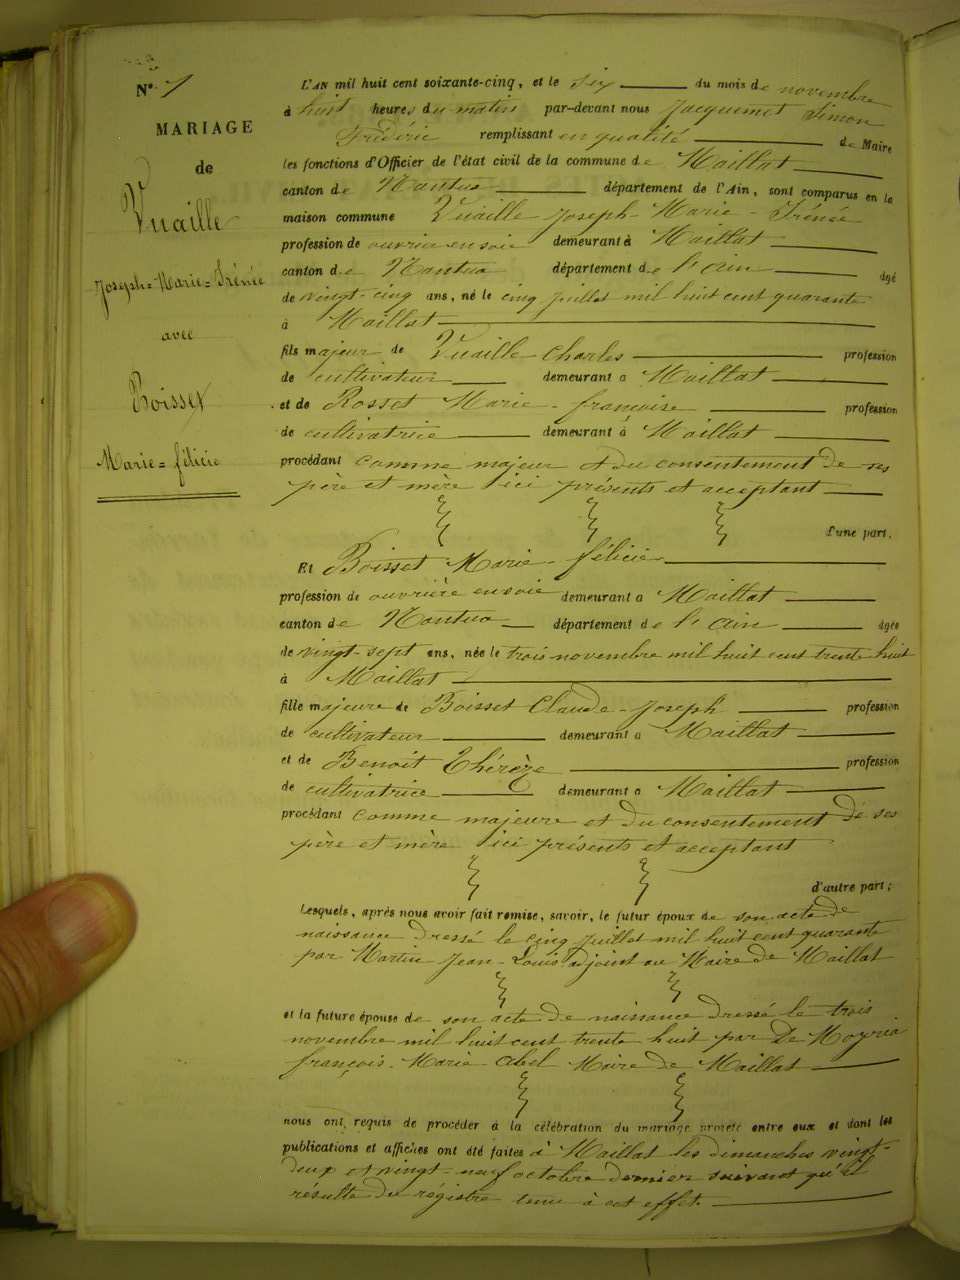 N° 7
MARIAGE
de
Vuaille
Joseph=Marie=Irénée
avec
Boisset
Marie=félicie
L'AN mil huit cent soixante-cinq, et le six du mois de novembre
à huit heures du matin par-devant nous Jacquemet Simon
Fréderic remplissant en qualité de Maire
les fonctions d'Officier de l'état civil de la commune de Maillat
canton de Nantua département de l'Ain, sont comparus en la
maison commune Vuaille Joseph-Marie-Irénée
profession de ouvrier en soie demeurant à Maillat
canton de Nantua département de l'ain âgé
de vingt-cinq ans, né le cinq juillet mil huit cent quarante
à Maillat
fils majeur de Vuaille Charles profession
de cultivateur demeurant à Maillat
et de Rosset Marie-francoise profession
de cultivatrice demeurant à Maillat
procédant comme majeur et du consentement de ses
père et mère ici présents et acceptant
d'une part.
Et Boisset Marie-félicie
profession de ouvrière en soie demeurant à Maillat
canton de Nantua département de l'ain âgée
de vingt-sept ans, née le trois novembre mil huit cent trente huit
à Maillat
fille majeure de Boisset Claude-Joseph profession
de cultivateur demeurant à Maillat
et de Benoit Thérèze profession
de cultivatrice demeurant à Maillat
procédant comme majeure et du consentement de ses
père et mère ici présents et acceptant
d'autre part;
Lesquels, après nous avoir fait remise, savoir, le futur époux de son acte de
naissance dressé le cinq juillet mil huit cent quarante
par Martin Jean-Louis adjoint au Maire de Maillat
et la future épouse de son acte de naissance dressé le trois
novembre mil huit cent trente huit par De Moyria
françois-Marie-Abel Maire de Maillat
nous ont requis de procéder à la célébration du mariage projeté entre eux et dont les
publications et affiches ont été faites à Maillat les dimanches vingt-
deux et vingt-neuf octobre dernier suivant qu'il
résulte du régistre tenu à cet effet.